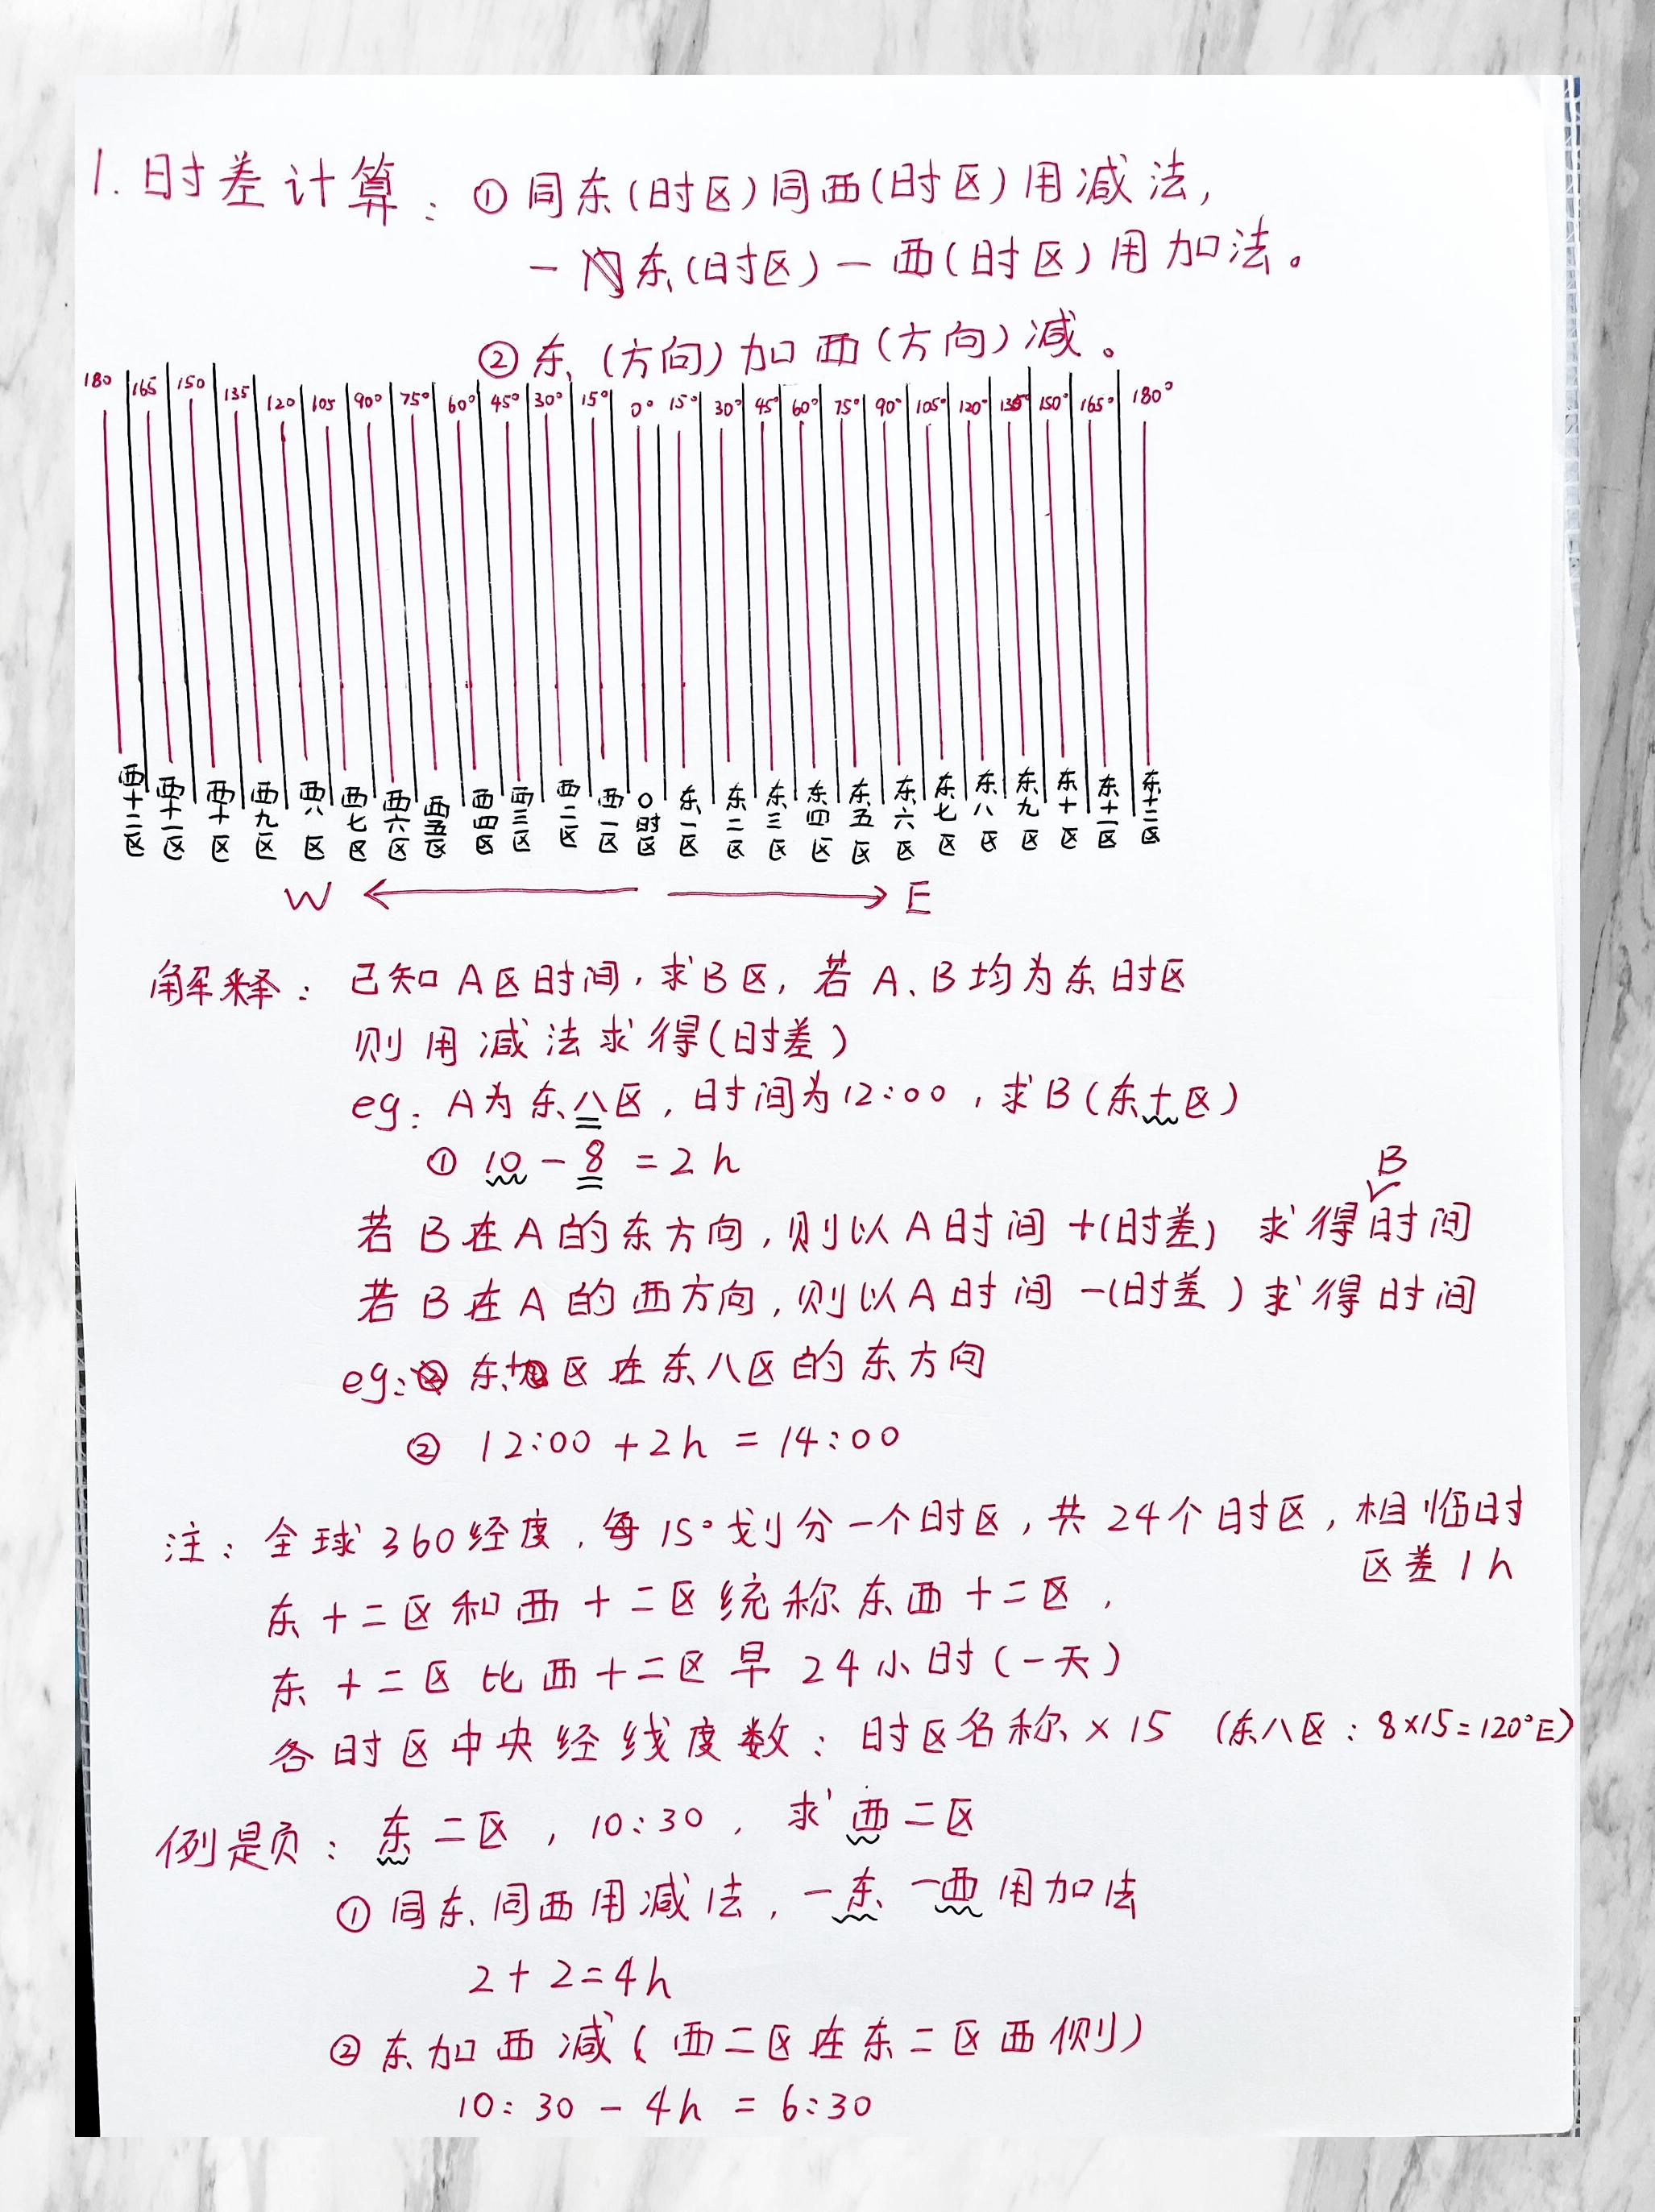 1. 时差计算: ① 同东(时区)同西(时区)用减法,
一东(时区)一西(时区)用加法。
② 东(方向)加西(方向)减。
180 165 150 135 120 105 90° 75° 60° 45° 30° 15° 0° 15° 30° 45° 60° 75° 90° 105° 120° 135° 150° 165° 180°
西十二区 西十一区 西十区 西九区 西八区 西七区 西六区 西五区 西四区 西三区 西二区 西一区 0时区 东一区 东二区 东三区 东四区 东五区 东六区 东七区 东八区 东九区 东十区 东十一区 东十二区
W E
解释: 已知A区时间,求B区,若A、B均为东时区
则用减法求得(时差)
eg: A为东八区,时间为12:00,求B(东十区)
① 10-8=2h
若B在A的东方向,则以A时间+(时差) 求得B时间
若B在A的西方向,则以A时间-(时差)求得时间
eg: 东十区在东八区的东方向
② 12:00+2h=14:00
注: 全球360经度,每15°划分一个时区,共24个时区,相临时
区差1h
东十二区和西十二区统称东西十二区,
东十二区比西十二区早24小时(一天)
各时区中央经线度数:时区名称×15 (东八区:8×15=120°E)
例题: 东二区,10:30,求西二区
① 同东同西用减法,一东一西用加法
2+2=4h
② 东加西减(西二区在东二区西侧)
10:30-4h=6:30